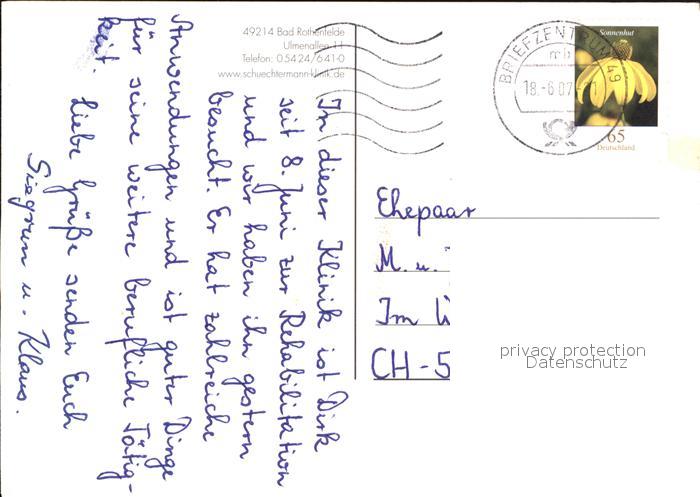 49214 Bad Rothenfelde
Ulmenallee 11
Telefon: 0 54 24 / 641-0
www.schuechtermann-klinik.de
In dieser Klinik ist Dirk
seit 8. Juni zur Rehabilitation
und wir haben ihn gestern
besucht. Er hat zahlreiche
Anwendungen und ist guter Dinge
für seine weitere berufliche Tätig-
keit.
Liebe Grüße senden Euch
Siegrun u. Klaus.
BRIEFZENTRUM 49
mb
18.-6.07
Sonnenhut
65
Deutschland
Ehepaar
M. u.
Im
CH-5
privacy protection
Datenschutz